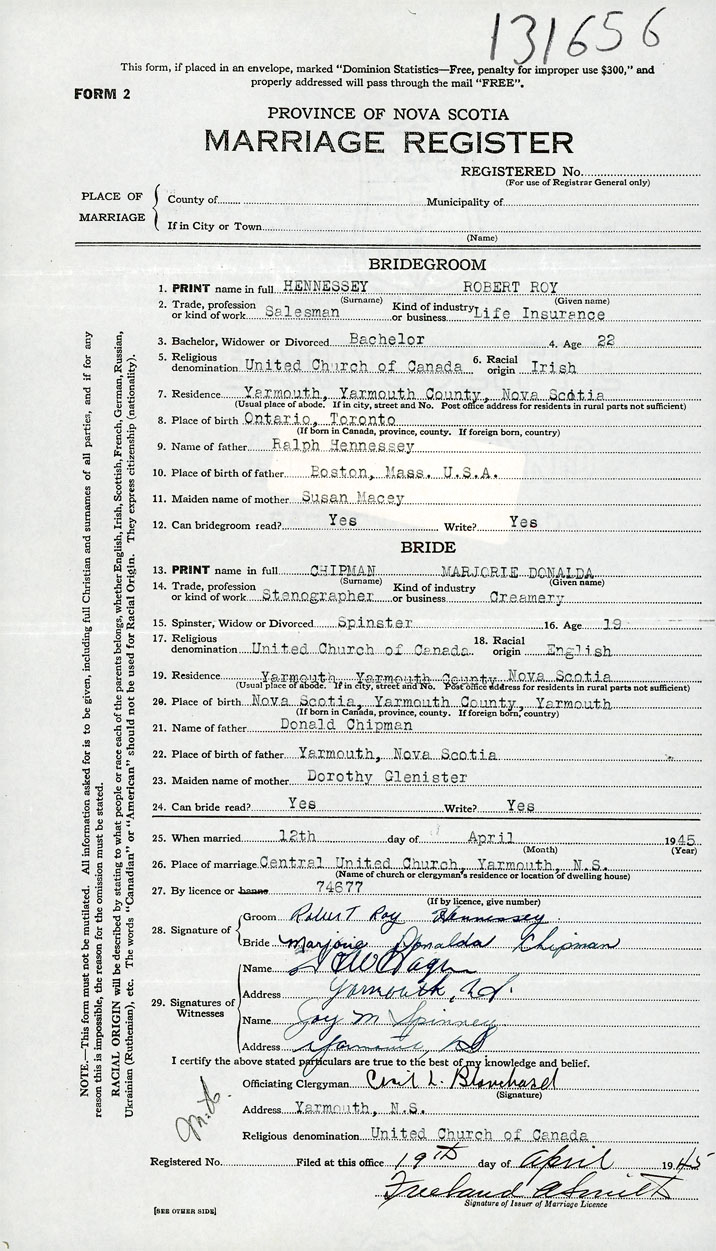 131656
This form, if placed in an envelope, marked "Dominion Statistics—Free, penalty for improper use $300," and
properly addressed will pass through the mail "FREE".
FORM 2
PROVINCE OF NOVA SCOTIA
MARRIAGE REGISTER
REGISTERED No.
(For use of Registrar General only)
PLACE OF MARRIAGE
County of Municipality of
If in City or Town
(Name)
BRIDEGROOM
1. PRINT name in full HENNESSEY ROBERT ROY
(Surname) (Given name)
2. Trade, profession or kind of work Salesman Kind of industry or business Life Insurance
3. Bachelor, Widower or Divorced Bachelor 4. Age 22
5. Religious denomination United Church of Canada 6. Racial origin Irish
7. Residence Yarmouth, Yarmouth County, Nova Scotia
(Usual place of abode. If in city, street and No. Post office address for residents in rural parts not sufficient)
8. Place of birth Ontario, Toronto
(If born in Canada, province, county. If foreign born, country)
9. Name of father Ralph Hennessey
10. Place of birth of father Boston, Mass. U.S.A.
11. Maiden name of mother Susan Macey
12. Can bridegroom read? Yes Write? Yes
BRIDE
13. PRINT name in full CHIPMAN MARJORIE DONALDA
(Surname) (Given name)
14. Trade, profession or kind of work Stenographer Kind of industry or business Creamery
15. Spinster, Widow or Divorced Spinster 16. Age 19
17. Religious denomination United Church of Canada 18. Racial origin English
19. Residence Yarmouth Yarmouth County Nova Scotia
(Usual place of abode. If in city, street and No. Post office address for residents in rural parts not sufficient)
20. Place of birth Nova Scotia, Yarmouth County, Yarmouth
(If born in Canada, province, county. If foreign born, country)
21. Name of father Donald Chipman
22. Place of birth of father Yarmouth, Nova Scotia
23. Maiden name of mother Dorothy Glenister
24. Can bride read? Yes Write? Yes
25. When married 12th day of April 1945
(Month) (Year)
26. Place of marriage Central United Church, Yarmouth, N.S.
(Name of church or clergyman's residence or location of dwelling house)
27. By licence or banns 74677
(If by licence, give number)
28. Signature of
Groom Robert Roy Hennessey
Bride Marjorie Donalda Chipman
29. Signatures of Witnesses
Name
Address Yarmouth, N.S.
Name Joy M Spinney
Address Yarmouth, NS
I certify the above stated particulars are true to the best of my knowledge and belief.
Officiating Clergyman Cecil L. Blanchard
(Signature)
Address Yarmouth, N.S.
Religious denomination United Church of Canada
Registered No. Filed at this office 19th day of April 1945
Freeland A Smith
Signature of Issuer of Marriage Licence
[SEE OTHER SIDE]
NOTE.—This form must not be mutilated. All information asked for is to be given, including full Christian and surnames of all parties, and if for any
reason this is impossible, the reason for the omission must be stated.
RACIAL ORIGIN will be described by stating to what people or race each of the parents belongs, whether English, Irish, Scottish, French, German, Russian,
Ukrainian (Ruthenian), etc. The words "Canadian" or "American" should not be used for Racial Origin. They express citizenship (nationality).